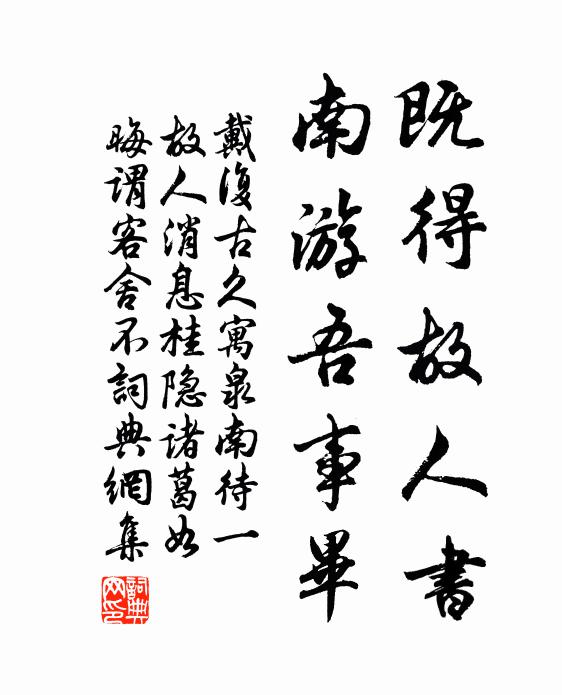 既得故人書
南游吾事畢
戴復古久寓泉南待一
故人消息桂隐诸葛如
晦谓客舍不詞典網集
詞典